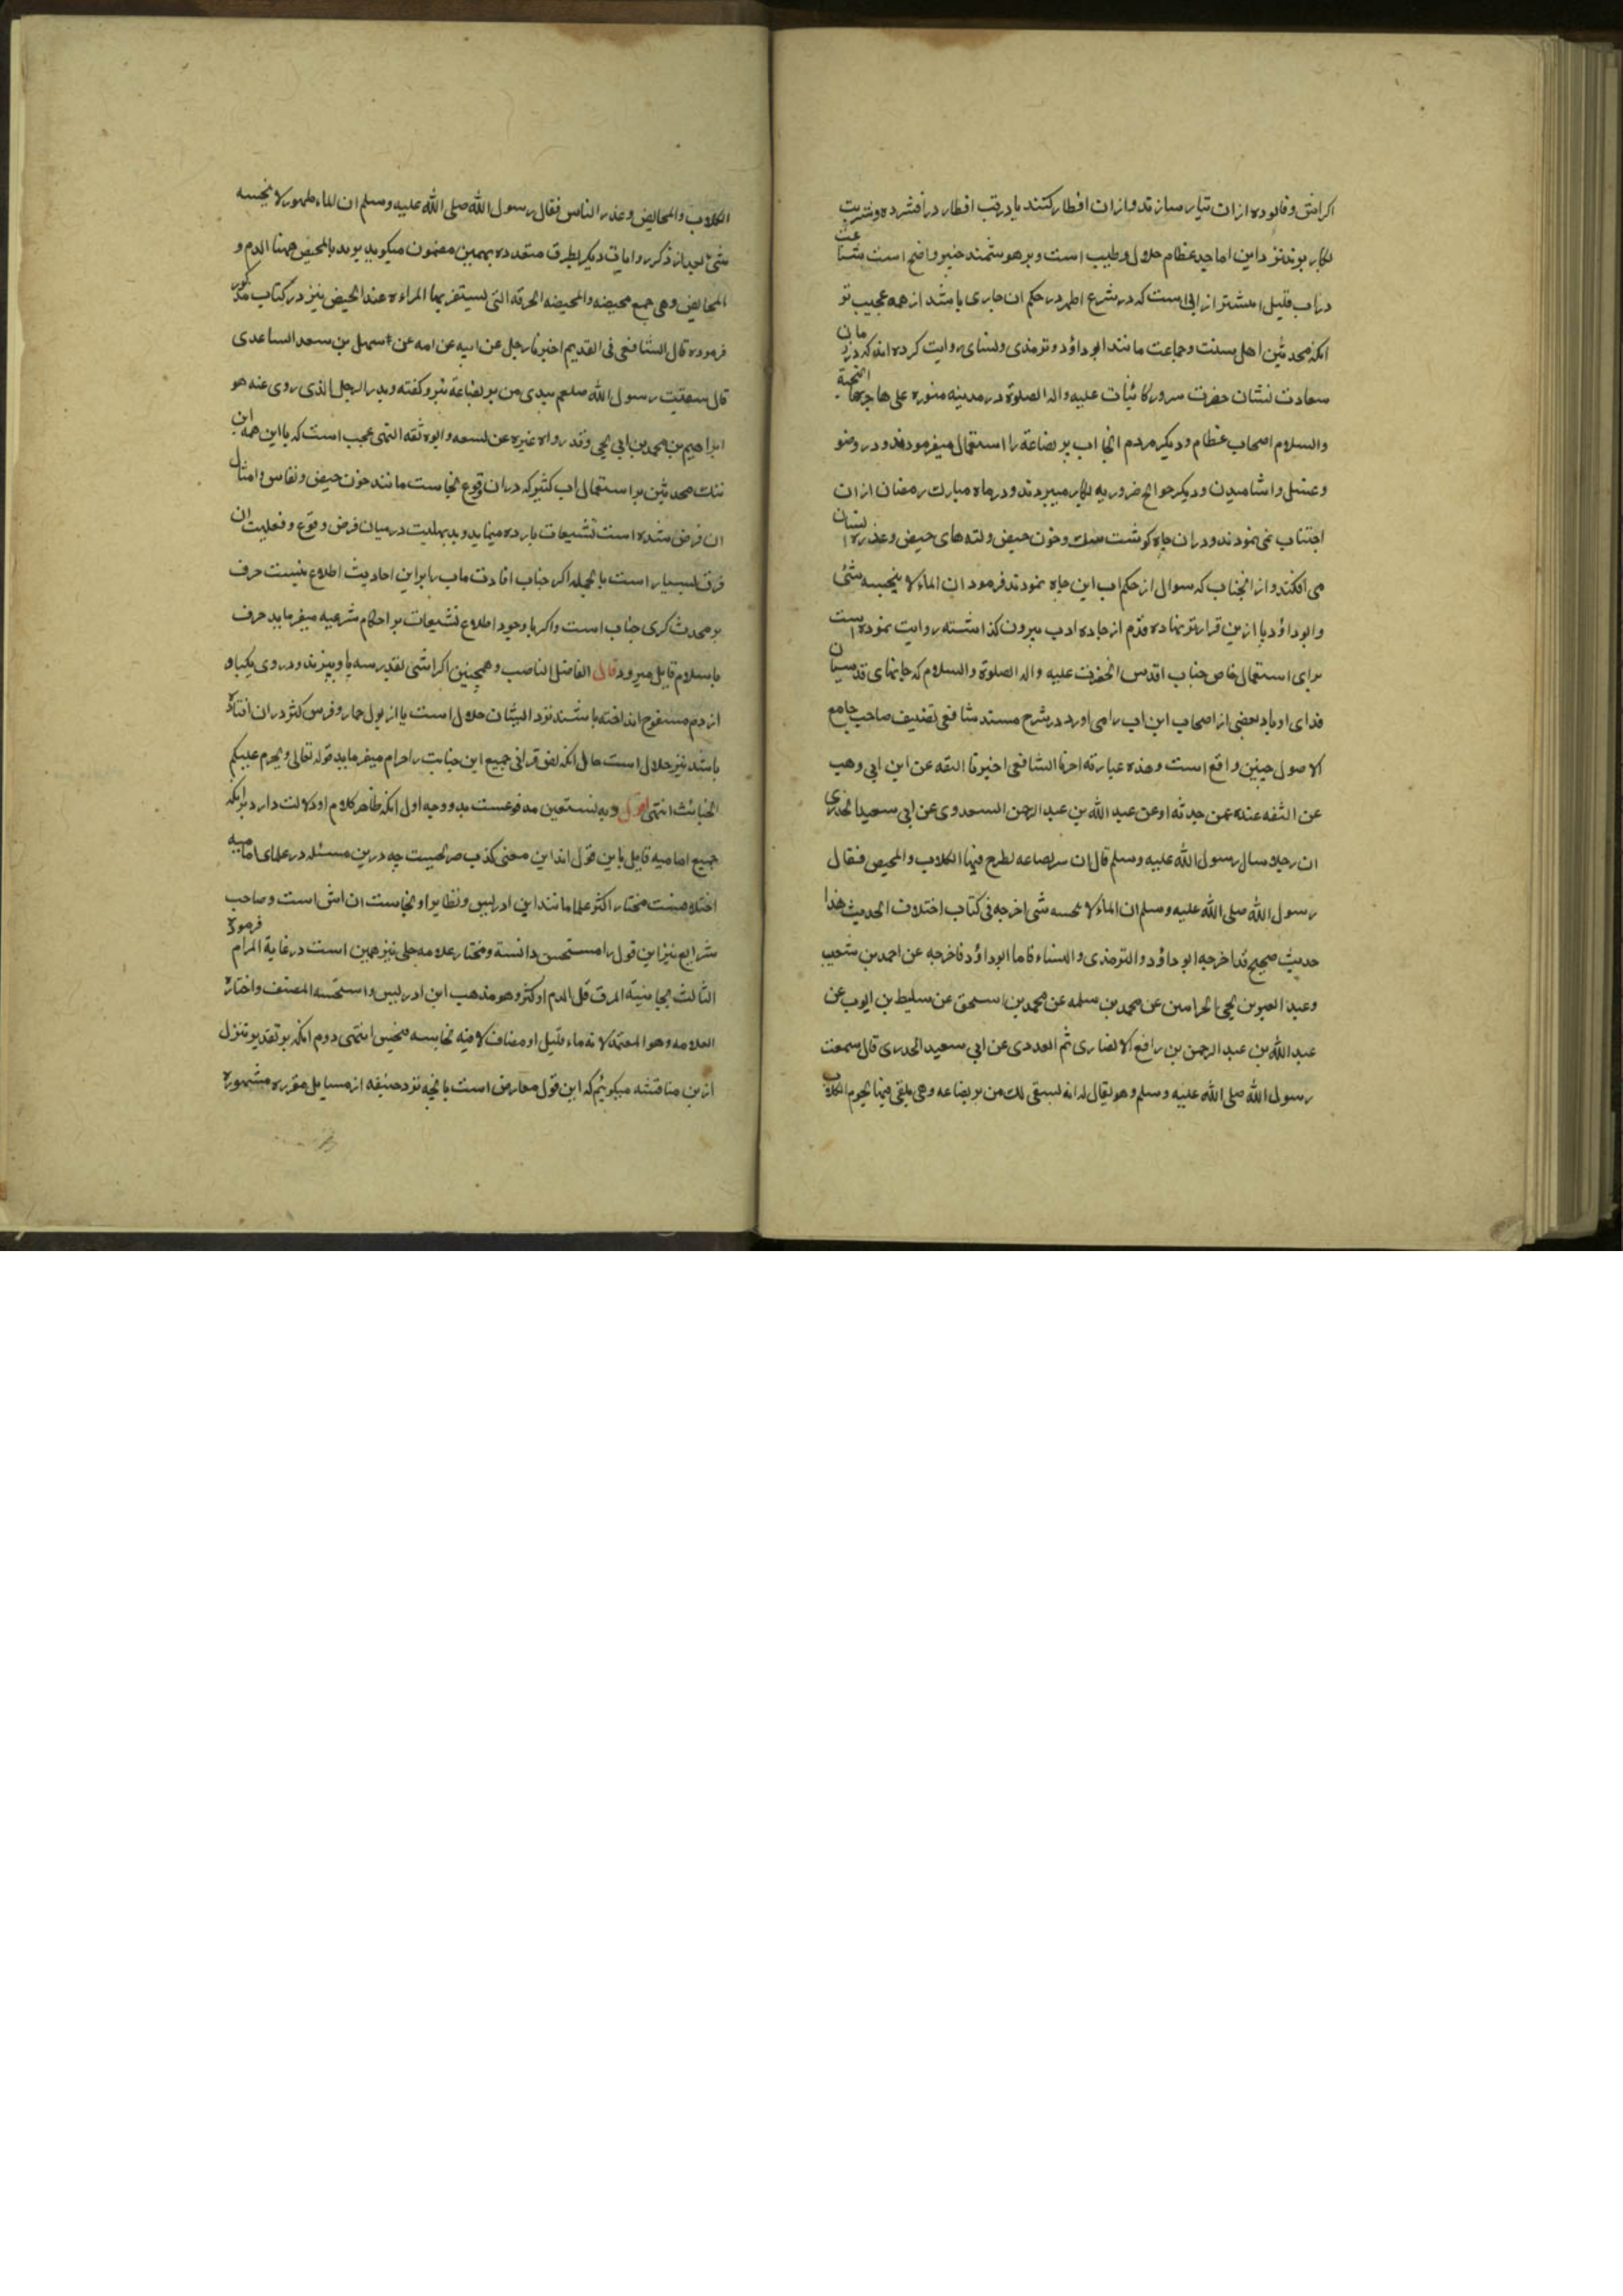 اکر اش و فالوده ازان تیار سازند و ازان افطار کنند یا در وقت افطار در افشرده و شربت
بکار برند نزد این اماجد عظام حلال و طیب است و بر هوشمند خبیر واضح است شناعت
در اب قلیل بیشتر از ابی است که در شرع اطهر در حکم اب جاری باشد از همه عجیب تر
انکه محدثین اهل سنت و جماعت مانند ابو داؤد و ترمذی و نسای روایت کرده اند که در زمان
سعادت نشان حضرت سرور کائنات علیه واله الصلوة در مدینه منوره علی هاجرها التحیة
والسلام اصحاب عظام و دیکر مردم انجا اب بر بضاعة را استعمال میفرمودند و در وضو
و غسل و اشامیدن و دیکر حوائج ضروریه بکار میبردند و در ماه مبارک رمضان ازان
اجتناب نمی نمودند و دران چاه کوشت سک و خون حیض و لته های حیض و عذره انسان
می افکندند و از انجناب که سوال از حکم اب این چاه نمودند فرمود ان الماء لا ینجسه شئ
و ابو داؤد پا ازین قرار برتر نهاده قدم از جاده ادب بیرون کذاشته روایت نموده است
برای استعمال خاص جناب اقدس انحضرت علیه واله الصلوة والسلام که جانهای قدسیان
فدای او باد بعضی از اصحاب این اب را می اورد در شرح مسند شافعی تصنیف صاحب جامع
الاصول چنین واقع است و هذه عبارته اخبرنا الشافعی اخبرنا الثقه عن ابن ابی وهب
عن الثقه عنده عمن حدثه او عن عبد الله بن عبد الرحمن السعدوی عن ابی سعید الخدری
ان رجلا سال رسول الله علیه وسلم قال ان بیر بضاعه تطرح فیها الکلاب والمحیض فقال
رسول الله صلی الله علیه وسلم ان الماء لا ینجسه شی اخرجه فی کتاب اختلاف الحدیث هذا
حدیث صحیح قد اخرجه ابو داؤد و الترمذی و النساء فاما ابو داؤد فاخرجه عن احمد بن شعیب
وعبد العزیز بن یحیی الحرامین عن محمد بن سلمه عن محمد بن اسحق عن سلیط بن ایوب عن
عبد الله بن عبد الرحمن بن رافع الانصاری ثم العددی عن ابی سعید الخدری قال سمعت
رسول الله صلی الله علیه وسلم وهو یقال له انه لیسقی لک من بر بضاعه وهی یلقی فیها لحوم الکلاب
الکلاب والمحایض وعذر الناس فقال رسول الله صلی الله علیه وسلم ان الماء طهور لا ینجسه
شئ بعد از ذکر روایات دیکر بطرق متعدده بهمین مضمون میکوید یرید بالمحیض ههنا الدم و
المحایض وهی جمع محیضه والمحیضه الخرقه التی تستثفر بها المراءه عند الحیض نیز در کتاب مذکور
فرموده قال الشافعی فی القدیم اخبرنا رجل عن ابیه عن امه عن سهل بن سعد الساعدی
قال سقیت رسول الله صلعم بیدی من بر بضاعة نیز و کفته ویدر الرجل الذی روی عنه هو
ابراهیم بن محمد بن ابی یحیی وقد رواه غیره عن لسعه وابوه ثقه انتهی عجب است که با این همه این
ننک محدثین بر استعمال اب کثیر که دران وقوع نجاست مانند خون حیض و نفاس و امثال
ان فرض شده است تشنیعات بارده مینماید و بدیهیست در میان فرض وقوع و فعلیت ان
فرق بسیار است بالجمله اکر جناب افادت ماب را بر این احادیث اطلاع نیست حرف
بر محدث کری جناب است و اکر با وجود اطلاع تشنیعات بر احکام شرعیه میفرماید حرف
باسلام قایل میرود قال الفاضل الناصب و همچنین اکر اشی بقدر سه پاو بپزند و دروی یکپاو
از دم مسفوح انداخته باشند نزد ایشان حلال است یا از بول حمار و فرس کثر دران افتاده
باشد نیز حلال است حال انکه نص قرانی جمیع این خبایث را حرام میفرماید قوله تعالی ویحرم علیکم
الخبائث انتهی اقول و به نستعین مدفوعست بدو وجه اول انکه ظاهر کلام او دلالت دارد بر انکه
جمیع امامیه قایل باین قول اند این معنی کذب صریحیست چه درین مسئله در علمای امامیه
اختلافست مختار اکثر علما مانند ابن ادریس و نظایر او نجاست ان اش است و صاحب
شرایع نیز این قول را مستحسن دانسته و مختار علامه حلی نیز همین است در غایة المرام فرموده
الثالث نجاسة المرق قل الدم او کثر وهو مذهب ابن ادریس واستحسنه المصنف واختاره
العلامه وهو المعتمد لانه ماء قلیل او مضاف لاقیه نجاسه فنجس انتهی دوم انکه بر تقدیر تنزل
ازین مناقشه میکوئیم که این قول معارض است بانچه نزد حنفیه از مسایل مقرره مشهوره